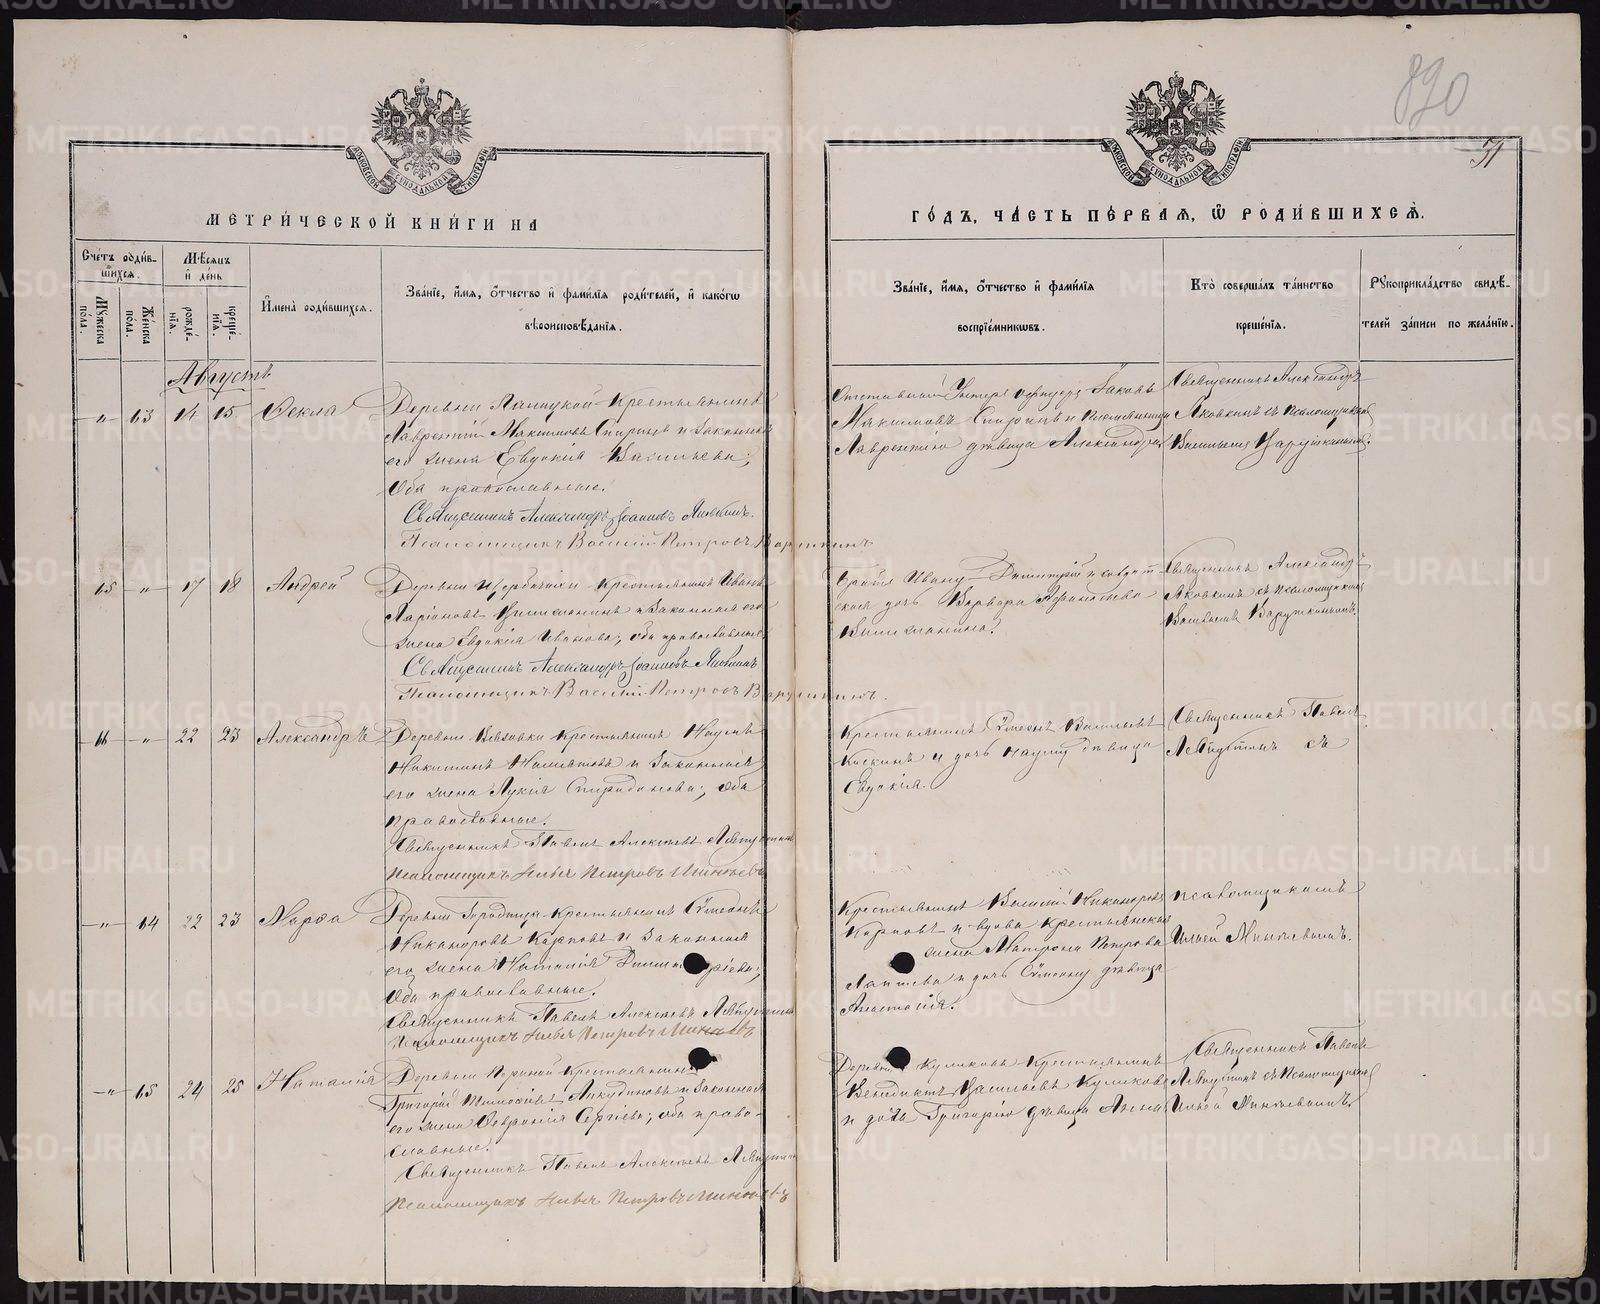 890
51
МЕТРИ́ЧЕСКОЙ КНИ́ГИ НА
ГО́ДЪ, ЧА́СТЬ ПЕ́РВАЯ, Ѡ҆ РОДИ́ВШИХСѦ.
МОСКОВСКОЙ СѴНОДАЛЬНОЙ ТИПОГРАФІИ
МОСКОВСКОЙ СѴНОДАЛЬНОЙ ТИПОГРАФІИ
Сче́тъ роди́в-
шихсѧ.
Мꙋ́жеска по́ла.
Же́нска по́ла.
Мѣ́сѧцъ
и҆ де́нь
рожде́-
нїѧ.
креще́-
нїѧ.
И҆мена̀ роди́вшихсѧ.
Зва́нїе, и҆́мѧ, ѻ҆́тчество и҆ фами́лїѧ роди́телей, и҆ како́гѡ
вѣроисповѣ́данїѧ.
Зва́нїе, и҆́мѧ, ѻ҆́тчество и҆ фами́лїѧ
воспрїе́мникѡвъ.
Кто̀ соверша́лъ та́инство
креще́нїѧ.
Рꙋкоприкла́дство свидѣ́-
телей за́писи по жела́нїю.
Августъ
" 63 14 15 Ѳекла
Деревни крестьянинъ
Лаврентій Максимовъ Спиринъ и законная
его жена Евдокія Васильева;
Оба православные.
Священникъ Александръ Іоанновъ Яковкинъ.
Псаломщикъ Василій Петровъ Варушкинъ
Отставной Унтеръ офицеръ Іаковъ
Максимовъ Спиринъ и
Лаврентію дѣвица Александра
Священникъ Александръ
Яковкинъ съ псаломщикомъ
Василіемъ Варушкинымъ.
65 " 17 18 Андрей
Деревни крестьянинъ Иванъ
Ларіоновъ и законная его
жена Евдокія Иванова; оба православные
Священникъ Александръ Іоанновъ Яковкинъ
Псаломщикъ Василій Петровъ Варушкинъ.
Ивану Димитрій и солдат-
ская дочь Варвара
Священникъ Александръ
Яковкинъ съ псаломщикомъ
Василіемъ Варушкинымъ.
66 " 22 23 Александръ
Деревни крестьянинъ Наумъ
Никитинъ и законная
его жена Лукія Спиридонова; оба
православные.
Священникъ Павелъ Алексѣевъ Ляпустинъ
Псаломщикъ Илья Петровъ Минѣевъ
Крестьянинъ Сѵмеонъ Васильевъ
и дочь Науму дѣвица
Евдокія.
Священникъ Павелъ
Ляпустинъ съ
" 64 22 23 Марѳа
Деревни Городища крестьянинъ Сѵмеонъ
Никаноровъ Карповъ и законная
его жена Наталія
Оба православные.
Священникъ Павелъ Алексѣевъ Ляпустинъ
Псаломщикъ Илья Петровъ Минѣевъ
Крестьянинъ Василій Никаноровъ
Карповъ и вдова крестьянская
жена Матрона Петрова
Лаптева и дочь Сѵмеону дѣвица
Анастасія.
псаломщикомъ
Ильей Минѣевымъ.
" 65 24 25 Наталія
Деревни крестьянинъ
Григорій Тимоѳеевъ Анкудиновъ и законная
его жена Ѳевронія Сергіева; оба право-
славные.
Священникъ Павелъ Алексѣевъ Ляпустинъ
Псаломщикъ Илья Петровъ Минѣевъ
Деревни Куликовъ крестьянинъ
Венедиктъ Васильевъ Куликовъ
и дочь Григорію дѣвица Анна
Священникъ Павелъ
Ляпустинъ съ псаломщикомъ
Ильей Минѣевымъ.
METRIKI.GASO-URAL.RU